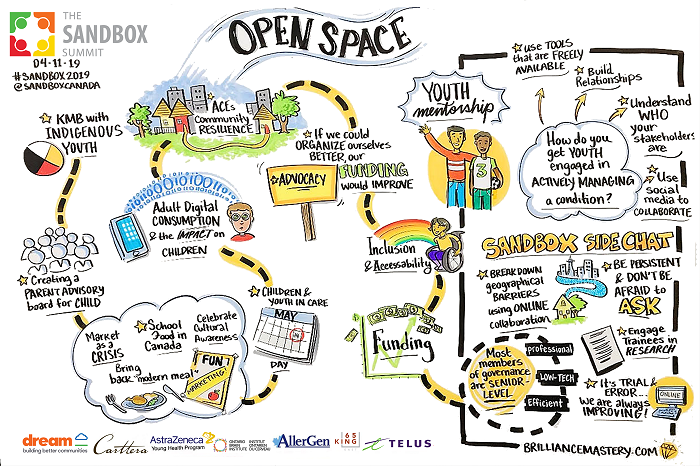 THE
SANDBOX
SUMMIT
04·11·19
#SANDBOX2019
@SANDBOXCANADA
OPEN SPACE
KMB with
INDIGENOUS
YOUTH
ACEs
Community
RESILIENCE
If we could
ORGANIZE ourselves
BETTER, our
FUNDING
would IMPROVE
ADVOCACY
YOUTH
mentorship
3
USE TOOLS
that are FREELY
AVAILABLE
Build
Relationships
Understand
WHO
your
stakeholders
are
Use
social
media to
COLLABORATE
How do you
get YOUTH
engaged in
ACTIVELY MANAGING
a condition?
Adult Digital
CONSUMPTION
& the IMPACT on
CHILDREN
Creating a
PARENT ADVISORY
board for CHILD
Inclusion
& Accessability
CHILDREN &
YOUTH IN CARE
MAY
DAY
Market
as a
CRISIS
School
Food in
Canada
Celebrate
Cultural
Awareness
Bring
back "modern meal"
FUN!
MARKETING
Funding
SANDBOX SIDE CHAT
BREAKDOWN
geographical
BARRIERS
using ONLINE
collaboration
BE PERSISTENT
& DON'T BE
AFRAID to
ASK
Engage
Trainees in
RESEARCH
Most
members of
governance
are SENIOR-
LEVEL
professional
LOW-TECH
Efficient
It's TRIAL &
ERROR...
we are always
IMPROVING!
ONLINE
BRILLIANCEMASTERY.COM
dream
building better communities
Carttera
AstraZeneca
Young Health Program
ONTARIO
BRAIN
INSTITUTE
INSTITUT
ONTARIEN
DU CERVEAU
AllerGen
65
KING
TELUS